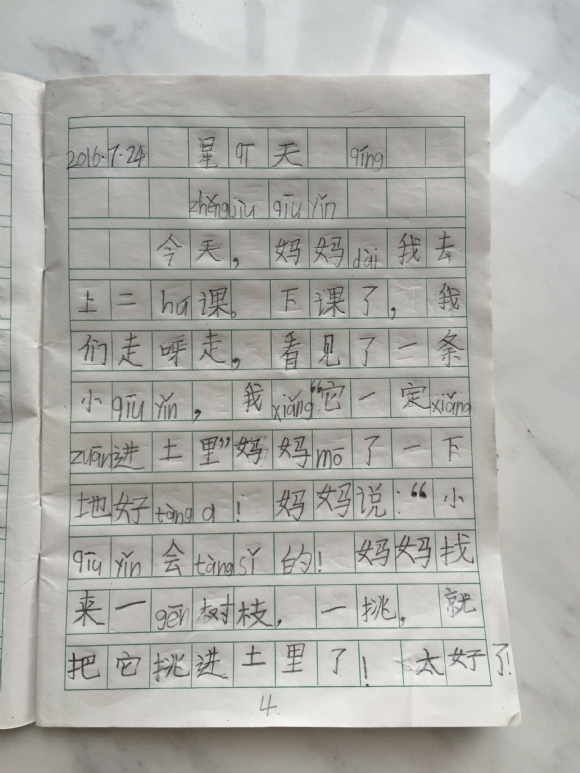 2016.7.24 星qī天 qíng
zhěngjiù qiūyǐn
今天，妈妈dài我去
上二hú课。下课了，我
们走呀走，看见了一条
小qiūyǐn，我xiǎng“它一定xiǎng
zuān进土里”妈妈mō了一下
地好tànga！妈妈说：“小
qiūyǐn会tàngsǐ的！妈妈找
来一gēn树枝，一挑，就
把它挑进土里了！太好了！
4